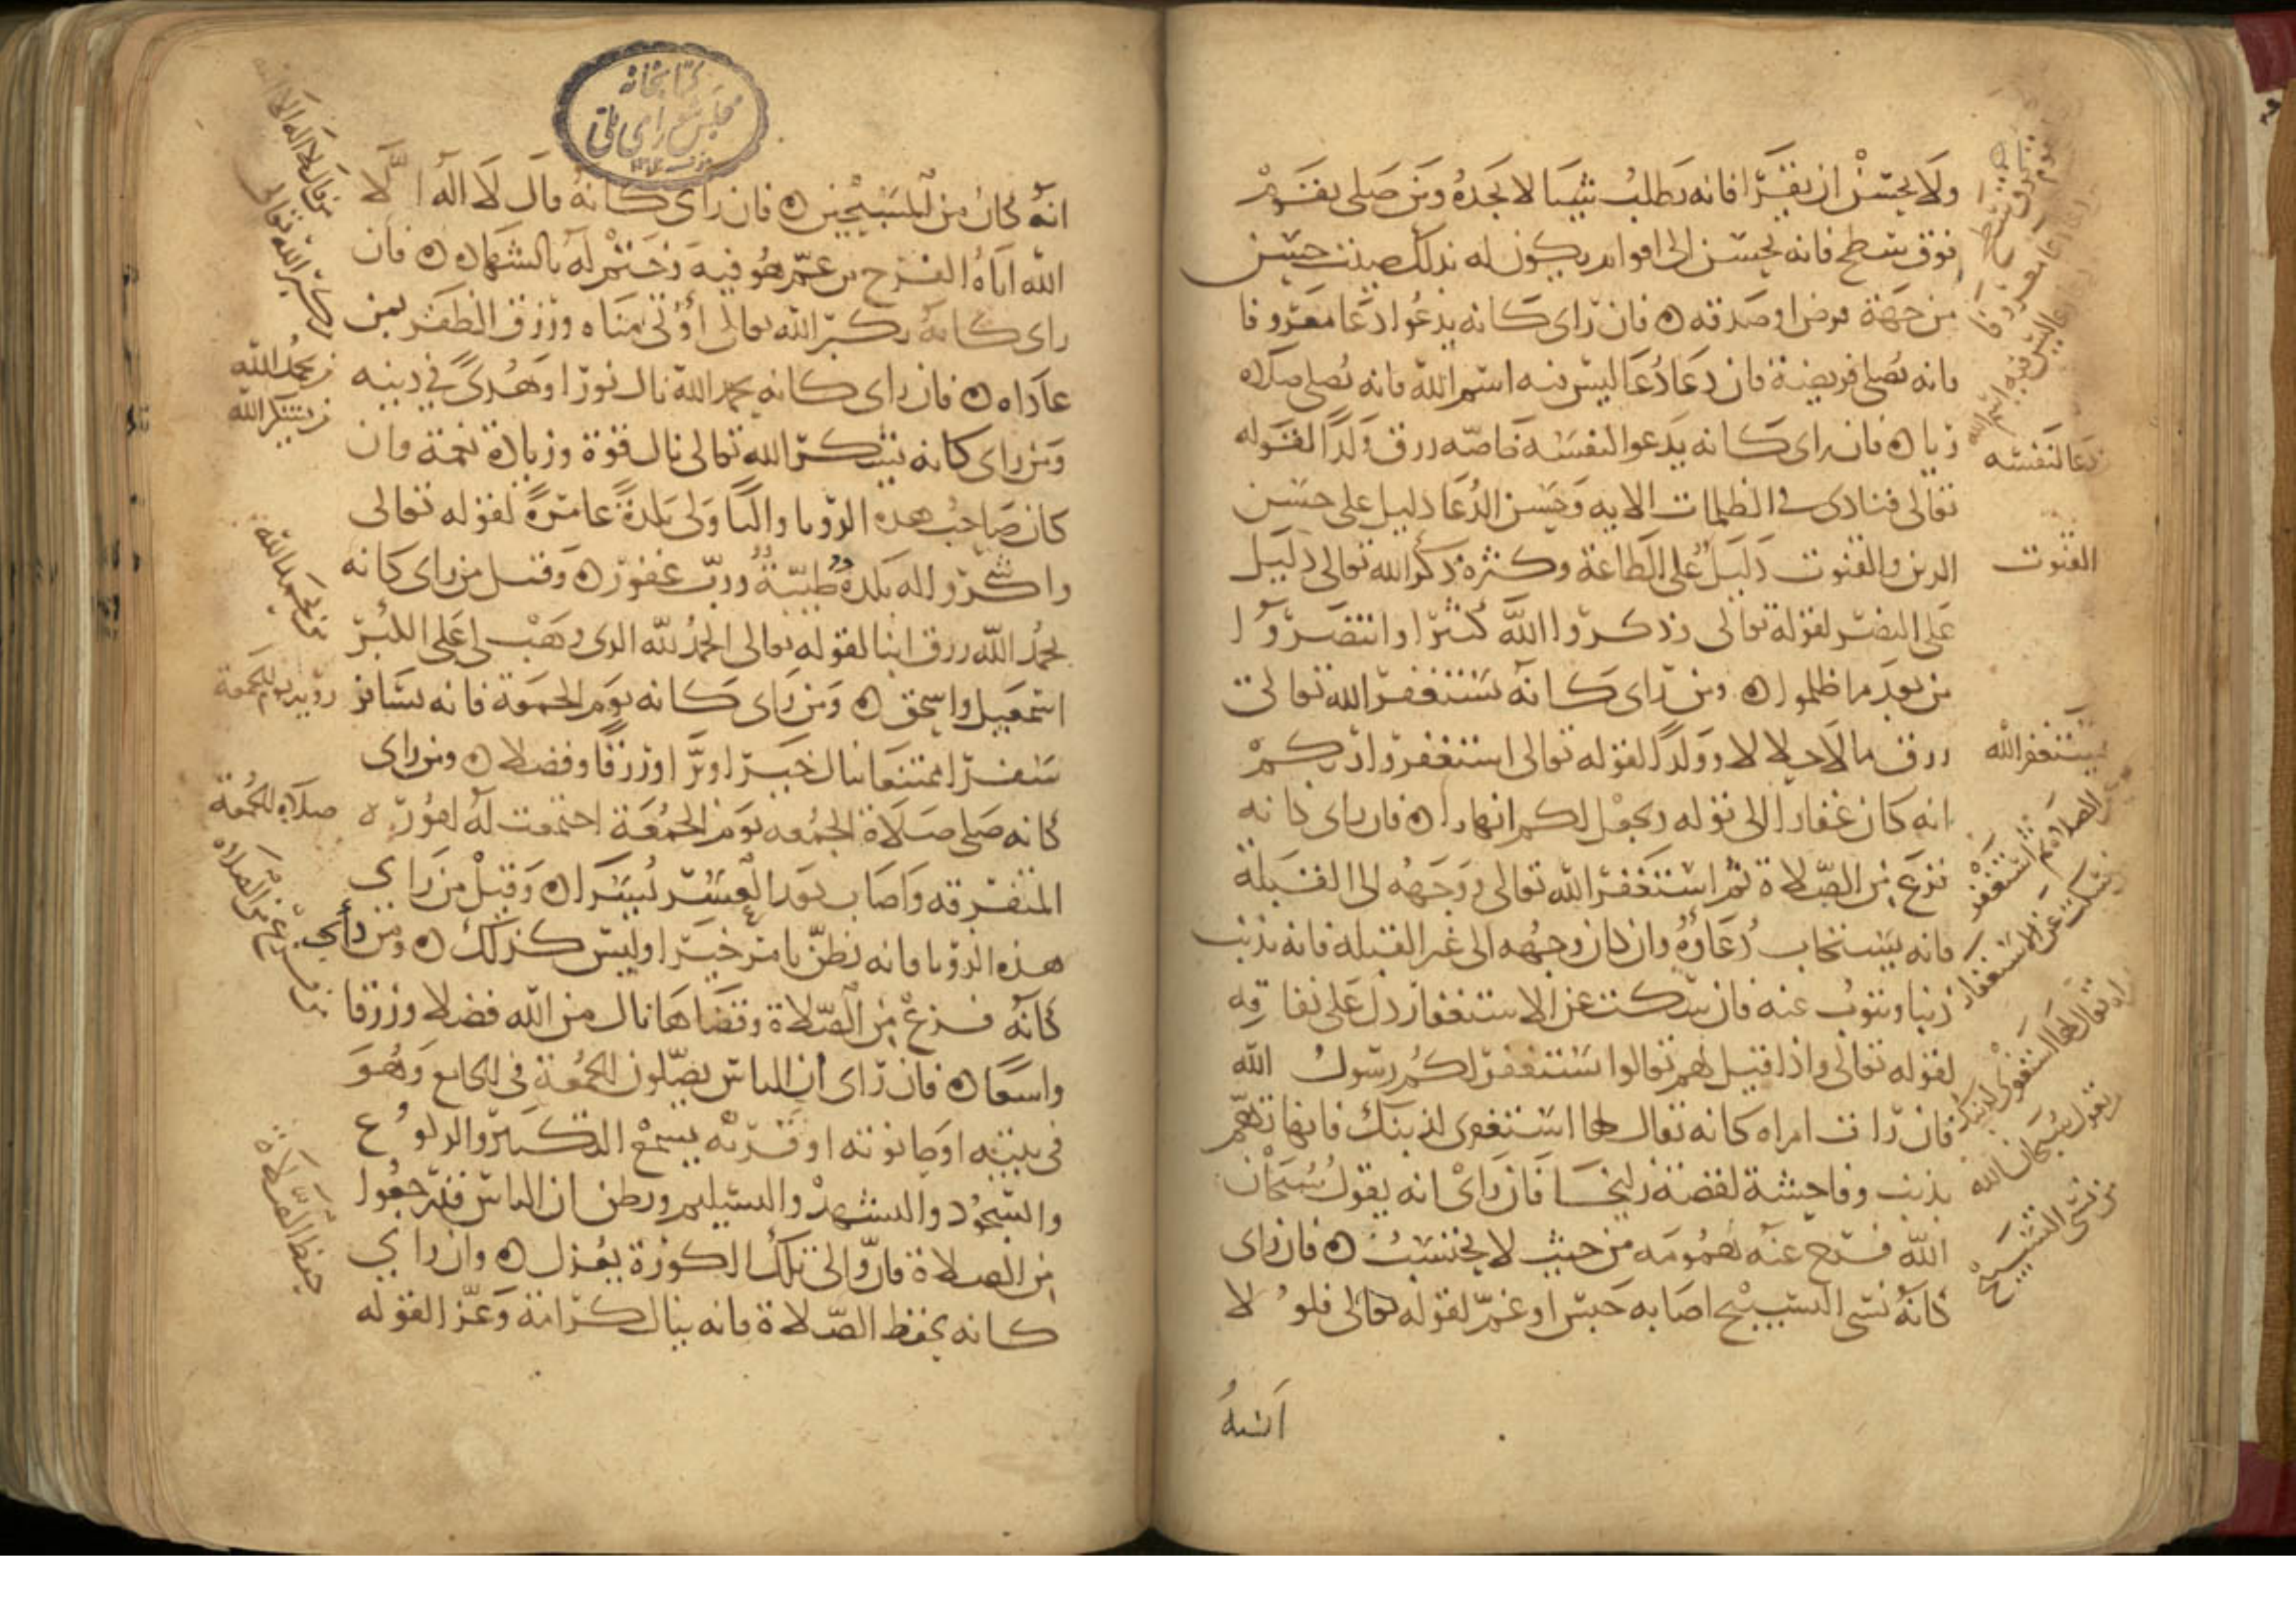 ولا يحسن ان يقرا فانه يطلب شيا لا يجده ومن صلى بقوم
فوق سطح فانه يحسن الى اقوام يكون له بذلك صيت حسن
من جهة قرض او صدقه ۞ فان راى كانه يدعوا دعا معروفا
فانه يصلى فريضة فان دعا دعا ليس فيه اسم الله فانه يصلى صلاه
ريا ۞ فان راى كانه يدعوا لنفسه خاصه رزق ولدا لقوله
تعالى فنادى فى الظلمات الايه وحسن الدعا دليل على حسن
الدين والقنوت دليل على الطاعة وكثرة ذكر الله تعالى دليل
على النصر لقوله تعالى وذكروا الله كثيرا وانتصروا
من بعد ما ظلموا ۞ ومن راى كانه يستغفر الله تعالى
رزق مالا حلالا وولدا لقوله تعالى استغفروا ربكم
انه كان غفارا الى قوله ويجعل لكم انهارا ۞ فان راى كانه
فرغ من الصلاة ثم استغفر الله تعالى ووجهه الى القبلة
فانه يستجاب دعاؤه وان كان وجهه الى غير القبلة فانه يذنب
ذنبا ويتوب عنه فان سكت عن الاستغفار دل على نفاقه
لقوله تعالى واذا قيل لهم تعالوا يستغفر لكم رسول الله
فان رات امراه كانه يقال لها استغفرى لذنبك فانها تتهم
بذنب وفاحشة لقصة زليخا فان راى انه يقول سبحان
الله فرج عنه همومه من حيث لا يحتسب ۞ فان راى
كانه نسى التسبيح اصابه حبس او غم لقوله تعالى فلولا
انه
دعا لنفسه
القنوت
يستغفر الله
سكت عن الاستغفار
يقول سبحان الله
من نسى التسبيح
كتابخانه
مجلس شورای ملی
انه كان من المسبحين ۞ فان راى كانه قال لا اله الا
الله اتاه الفرج من غم هو فيه وختم له بالشهاده ۞ فان
راى كانه يكبر الله تعالى اوتى مناه ورزق الظفر بمن
عاداه ۞ فان راى كانه يحمد الله نال نورا وهدى فى دينه
ومن راى كانه يشكر الله تعالى نال قوة وزيادة نعمة وان
كان صاحب هذه الرؤيا واليا ولى بلدة عامرة لقوله تعالى
واشكروا له بلدة طيبة ورب غفور ۞ وقيل من راى كانه
يحمد الله رزق ابنا لقوله تعالى الحمد لله الذى وهب لى على الكبر
اسمعيل واسحق ۞ ومن راى كانه يوم الجمعة فانه يسافر
سفرا ممتنعا ينال خيرا وبرا ورزقا وفضلا ۞ ومن راى
كانه صلى صلاة الجمعه يوم الجمعة اجتمعت له اموره
المتفرقه واصاب بعد العسر يسرا ۞ وقيل من راى
هذه الرؤيا فانه يظن بامر خيرا وليس كذلك ۞ ومن راى
كانه فرغ من الصلاة وقضاها نال من الله فضلا ورزقا
واسعا ۞ فان راى ان الناس يصلون الجمعة فى الجامع وهو
فى بيته او حانوته او قريه يسمع التكبير والركوع
والسجود والتشهد والتسليم ويظن ان الناس قد رجعوا
من الصلاة فان والى تلك الكورة يعزل ۞ وان راى
كانه يحفظ الصلاة فانه ينال كرامة وعزا لقوله
من قال لا اله الا الله
يكبر الله تعالى
من يحمد الله
من يشكر الله
رؤية يوم الجمعة
صلاه الجمعة
من فرغ من الصلاة
حفظ الصلاة